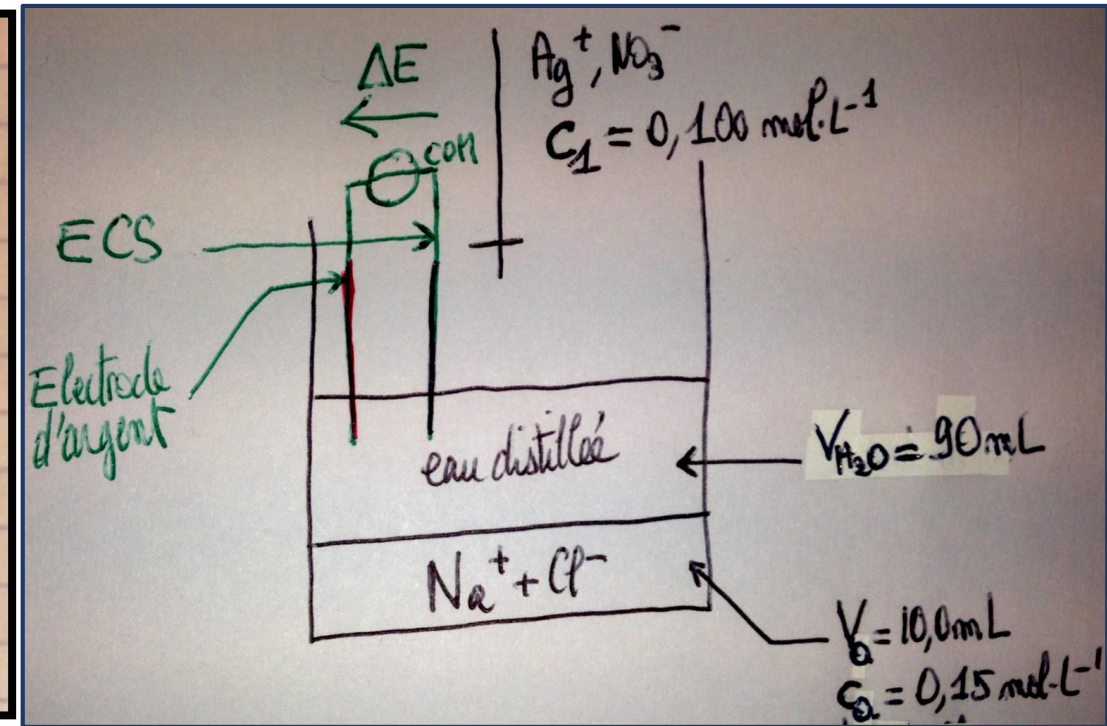 ΔE
COM
Ag⁺, NO₃⁻
C₁ = 0,100 mol·L⁻¹
ECS
Electrode
d'argent
eau distillée
V_H₂O = 90 mL
Na⁺ + Cl⁻
V₀ = 10,0 mL
C₀ = 0,15 mol·L⁻¹